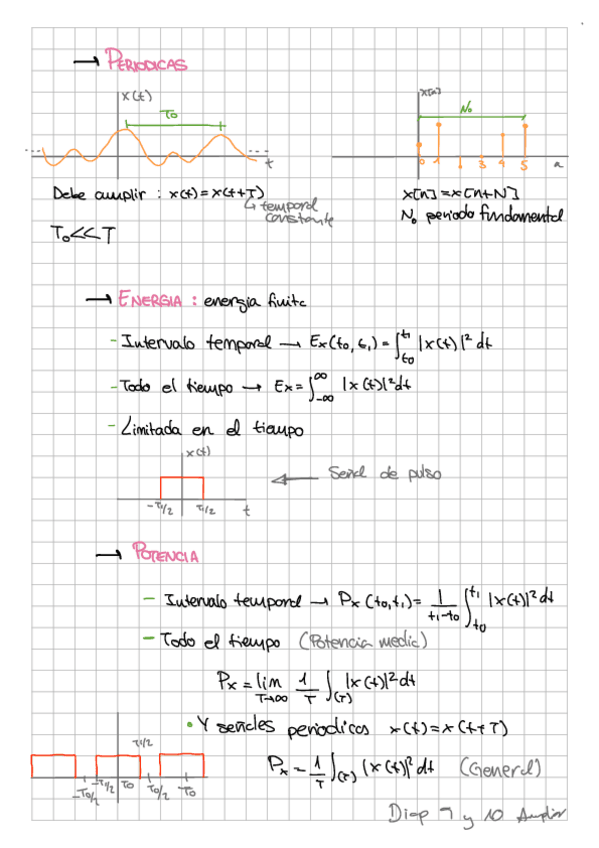 → PERIODICAS
x(t)
T0
t
x[n]
N0
0 1 1 3 4 5 n
Debe cumplir : x(t)=x(t+T)
↳ temporal
constante
T0<<T
x[n]=x[n+N]
N0 periodo fundamental
→ ENERGIA : energia finita
- Intervalo temporal → Ex(t0,t1)=∫t0^t1 |x(t)|² dt
- Todo el tiempo → Ex=∫-∞^∞ |x(t)|²dt
- Limitada en el tiempo
x(t)
-τ/2 τ/2 t
Señal de pulso
→ POTENCIA
- Intervalo temporal → Px(t0,t1)= 1/(t1-t0) ∫t0^t1 |x(t)|² dt
- Todo el tiempo (Potencia media)
Px = lim T→∞ 1/T ∫(T) |x(t)|² dt
• Y señales periodicas x(t)=x(t+T)
τ/2
-T0/2 -τ/2 T0 T0/2 T0
Px = 1/T ∫(T) |x(t)|² dt (General)
Diap 9 y 10 Ampliar